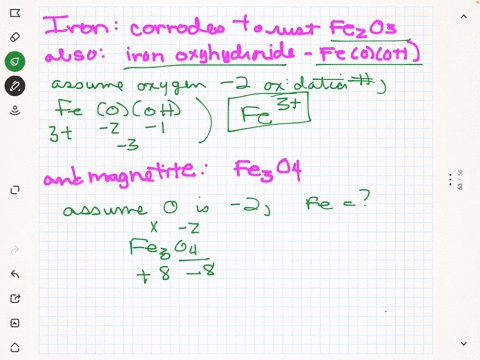 Iron: corrodes to rust Fe2O3
also: iron oxyhydroxide - Fe(O)(OH)
assume oxygen -2 oxidation #,
Fe (O)(OH) Fe3+
3+ -2 -1
-3
and magnetite: Fe3O4
assume O is -2, Fe = ?
x -2
Fe3O4
+8 -8